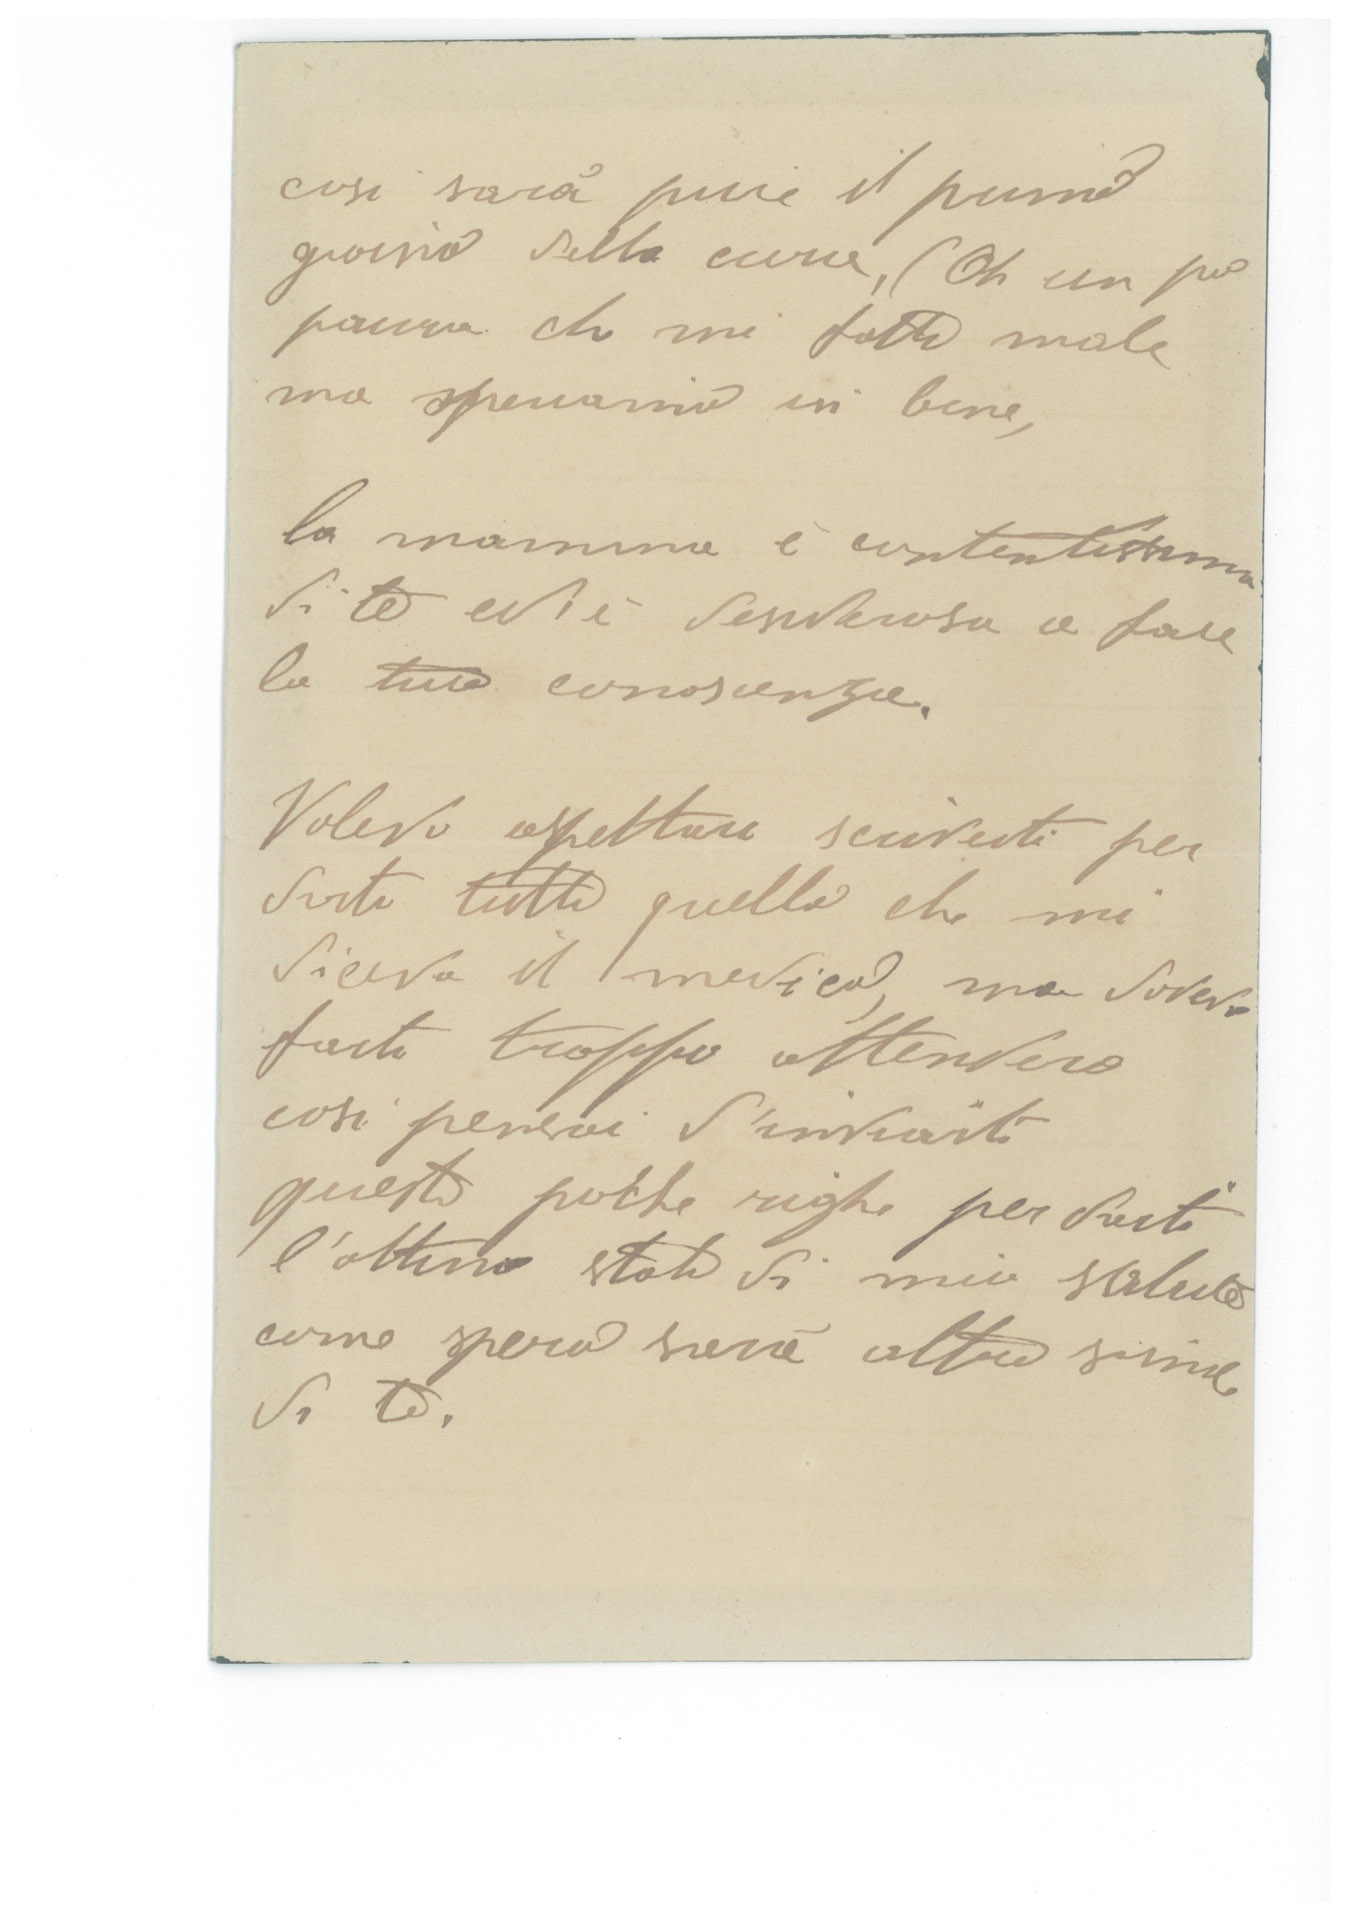 cosi sarà pure il primo
giorno della cura, (Oh un po
paura che mi fatto male
ma speriamo in bene,
la mamma è contentissima
di te ed è desiderosa a fare
la tua conoscenza.
Volevo aspettare scriverti per
dirti tutto quello che mi
diceva il medico, ma dovevo
farti troppo attendere
cosi pensai d'inviarti
queste poche righe per darti
l'ottimo stato di mia salute
come spero sarà altro simile
di te.